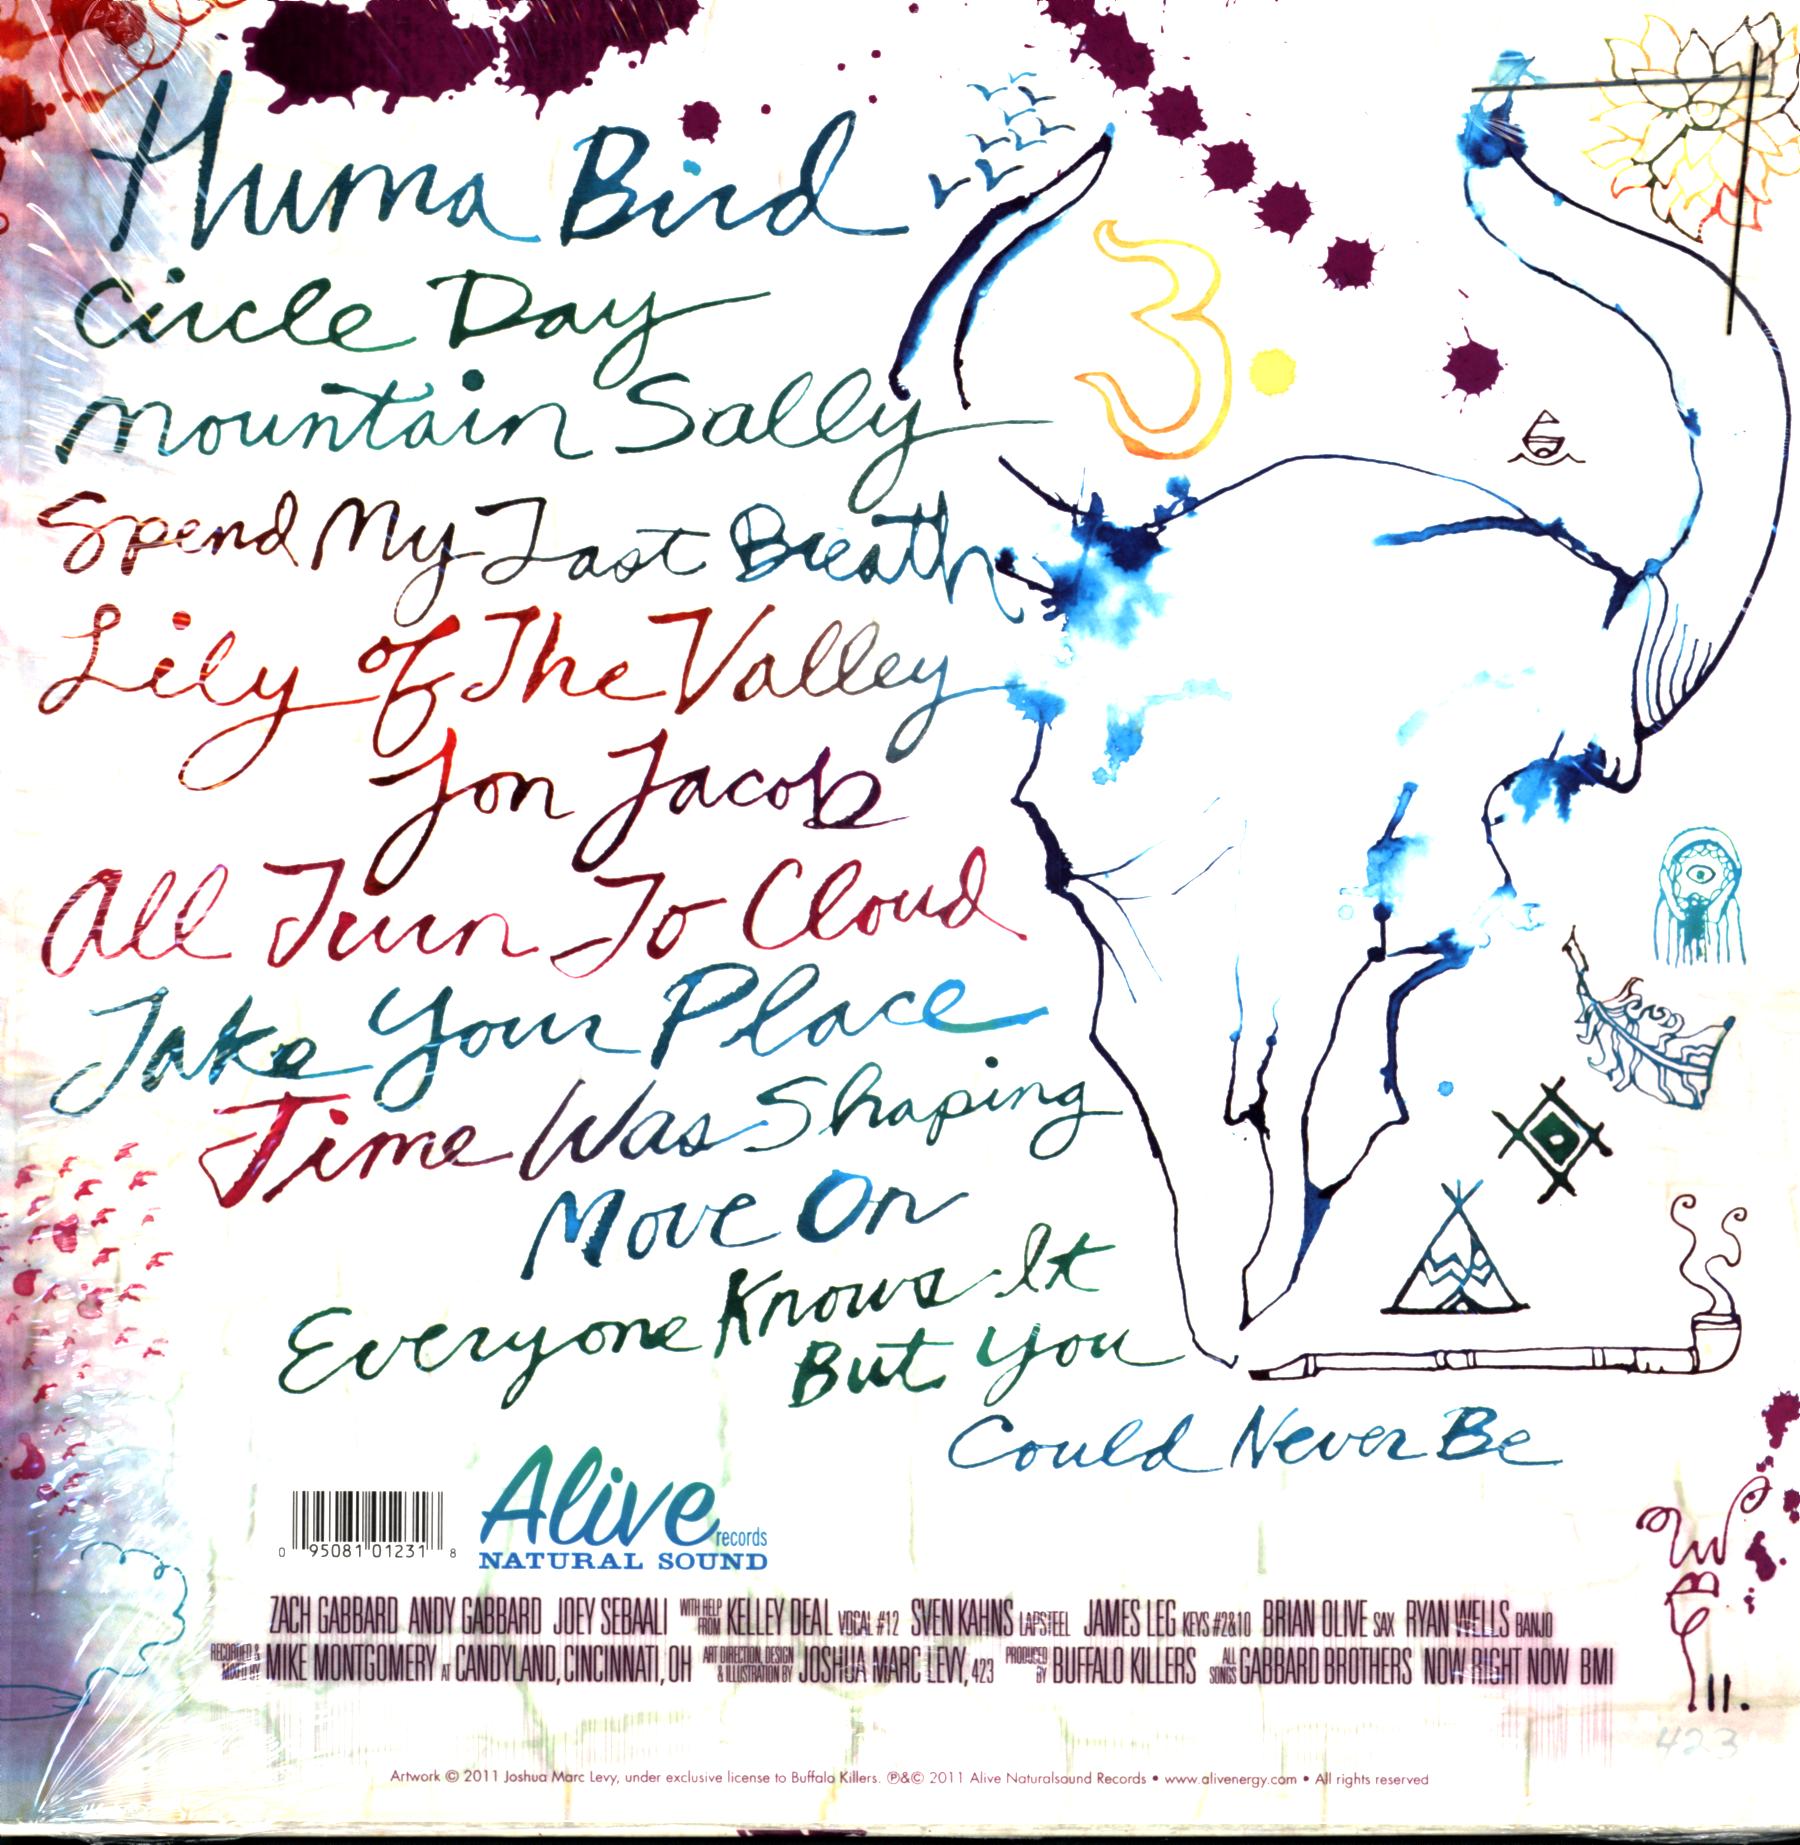 Huma Bird
Circle Day
Mountain Sally
Spend My Last Breath
Lily of The Valley
Jon Jacob
All Turn To Cloud
Take Your Place
Time Was Shaping
Move On
Everyone Knows It
But You
Could Never Be
3
0 95081 01231 8
Alive
records
NATURAL SOUND
ZACH GABBARD ANDY GABBARD JOEY SEBAALI WITH HELP FROM KELLEY DEAL VOCAL #12 SVEN KAHNS LAPSTEEL JAMES LEG KEYS #2&10 BRIAN OLIVE SAX RYAN WELLS BANJO
RECORDED & MIXED BY MIKE MONTGOMERY AT CANDYLAND, CINCINNATI, OH ART DIRECTION, DESIGN & ILLUSTRATION BY JOSHUA MARC LEVY, 423 PRODUCED BY BUFFALO KILLERS ALL SONGS GABBARD BROTHERS NOW RIGHT NOW BMI
11.
423
Artwork © 2011 Joshua Marc Levy, under exclusive license to Buffalo Killers. ℗&© 2011 Alive Naturalsound Records • www.alivenergy.com • All rights reserved